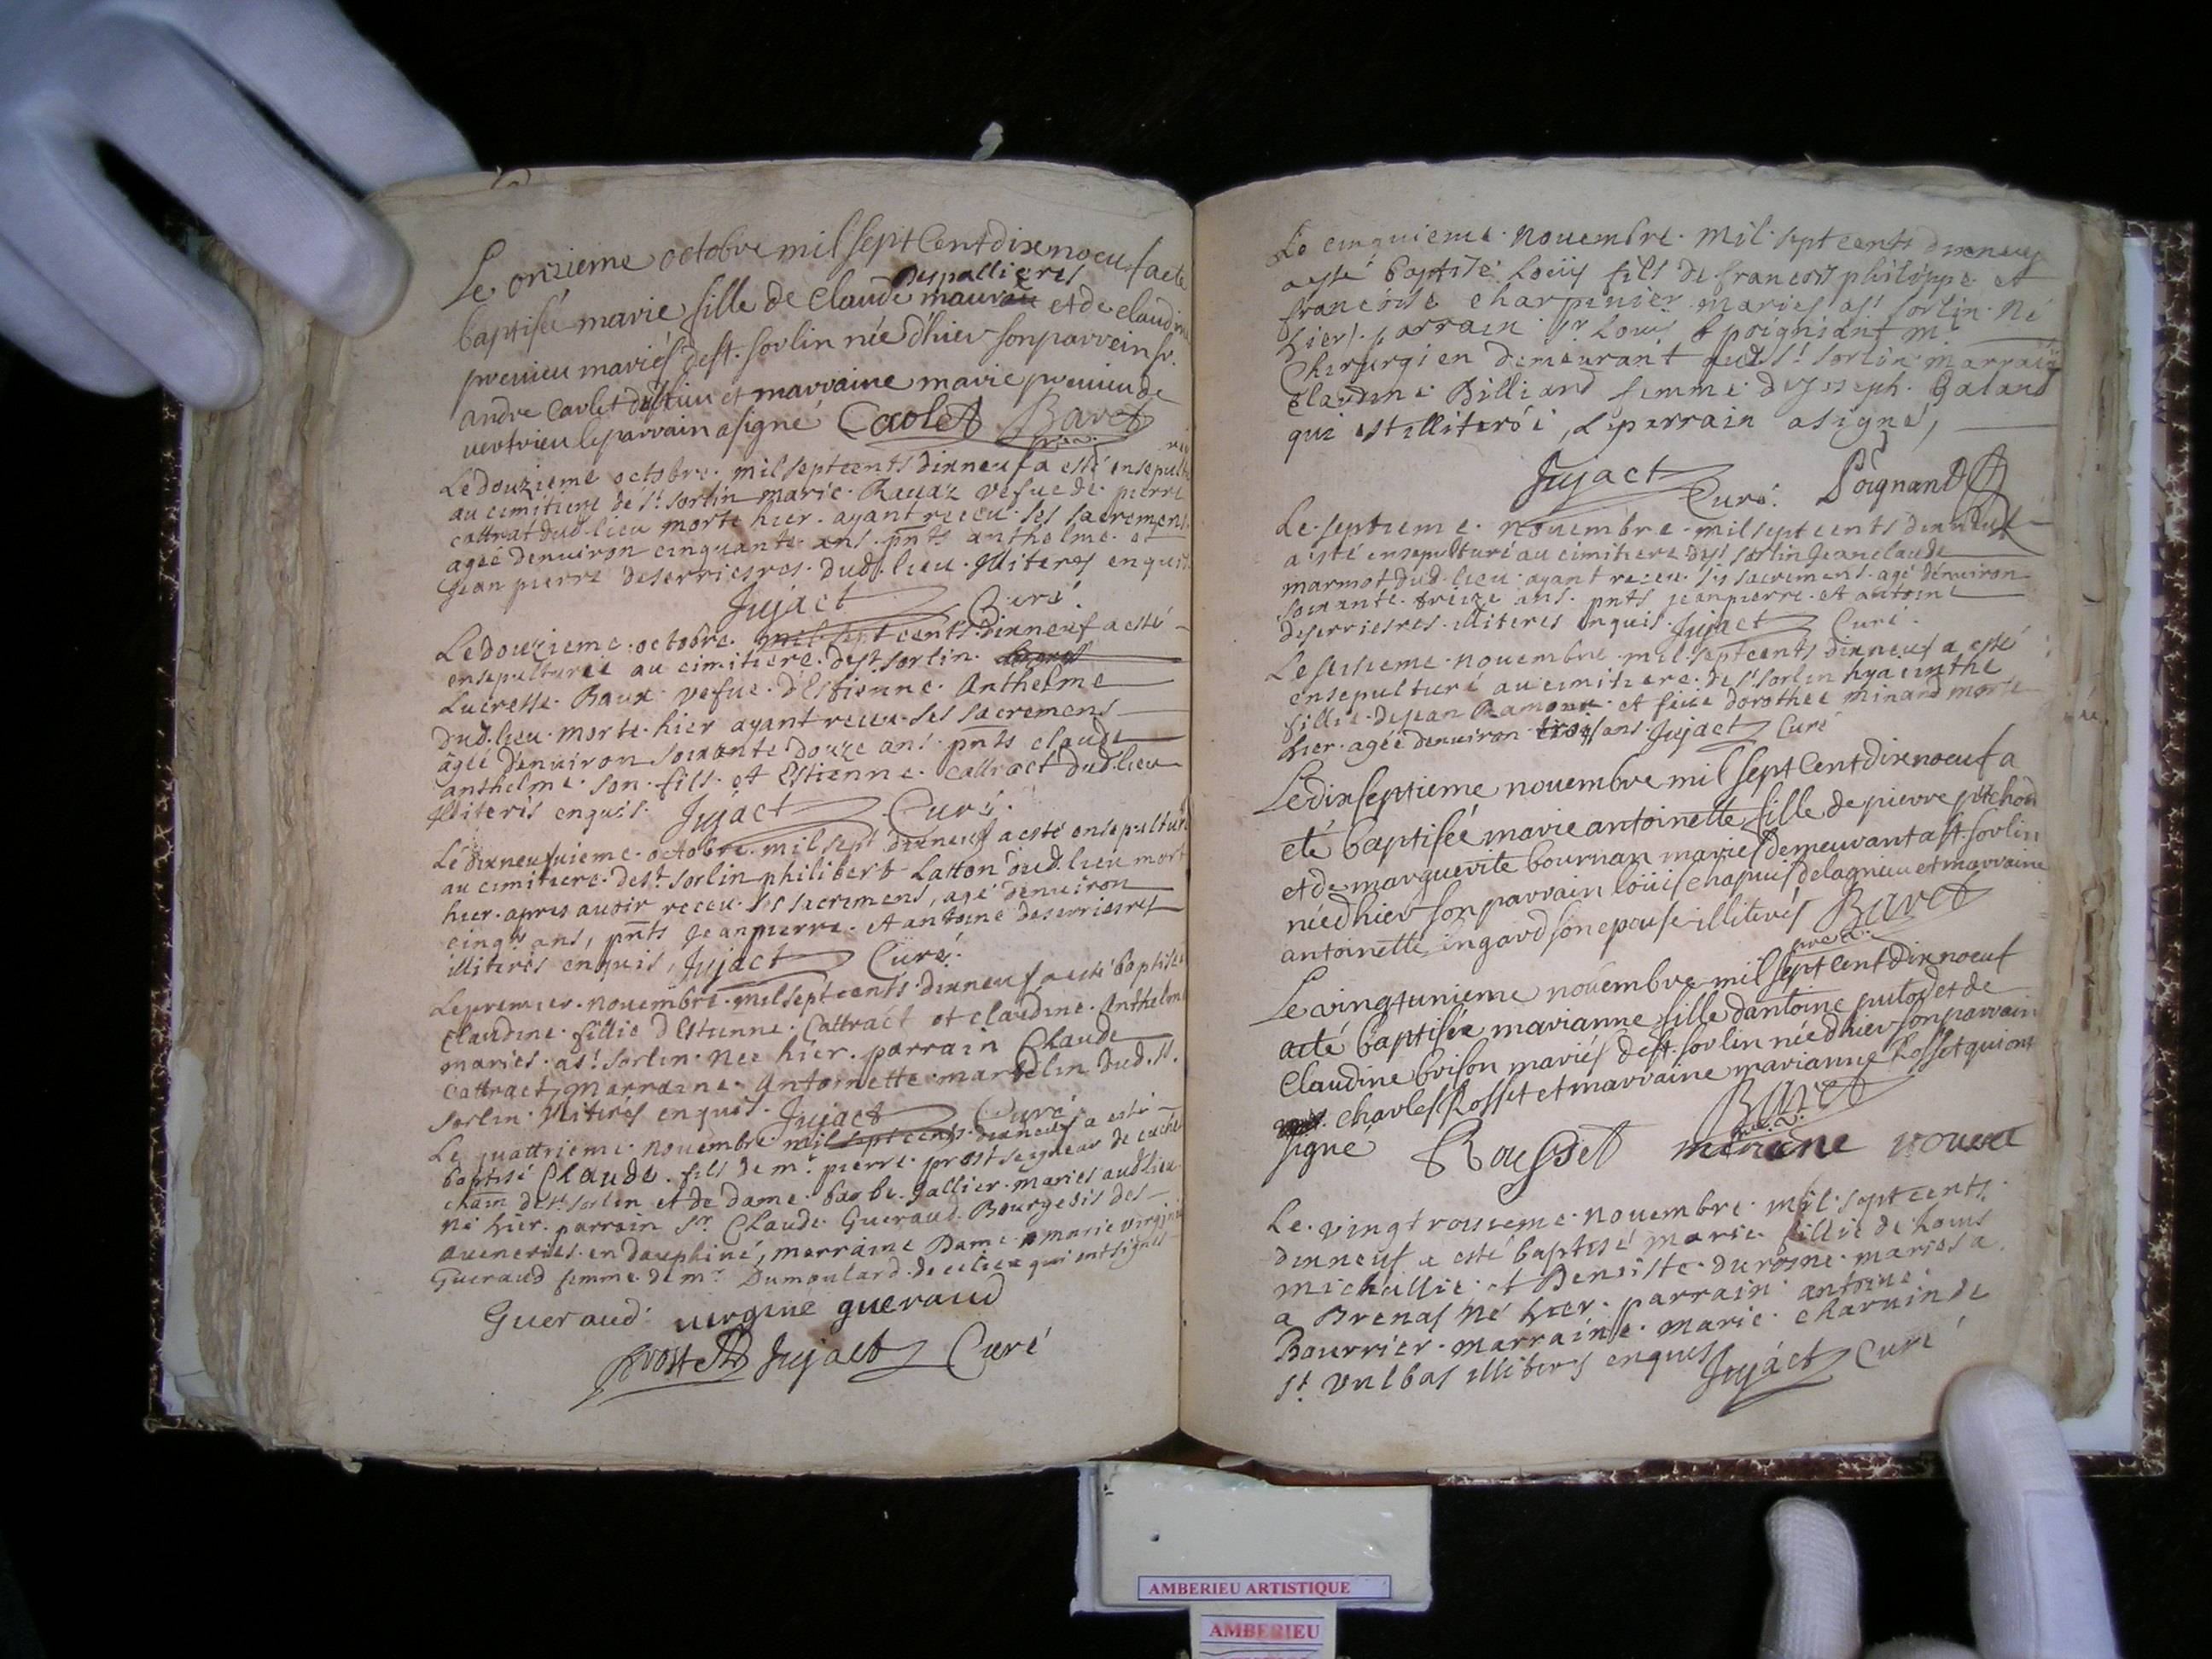 Le onzieme octobre mil sept Cent dix noeuf a ete
despallieres
baptisée marie fille de Claude mauvais et de claudine
premieu mariés de st. sorlin née d'hier son parrein sr.
andre Carlet dudt lieu et marraine marie premieu de
vertrieu le parrain a signé Carlet Baret
Le douzieme octobre mil sept cents dixneuf a esté ensepulturée
au cimitiere de st sorlin marie Ravaz vefue de pierre
cattrat dud lieu morte hier ayant receu ses sacremens
agée denuiron cinquante ans pnts anthelme et
Jean pierre deserriesres dud. lieu illiteres enquis
Jujact Curé.
Le douzieme octobre mil sept cents dixneuf a esté
ensepulturée au cimitiere de st sorlin
Lucresse Baux vefue d'Estienne Anthelme
dud. lieu morte hier ayant receu ses sacremens
agée denuiron soixante douze ans pnts claude
anthelme son fils et Estienne cattract dud lieu
illiterés enquis. Jujact Curé.
Le dixneufuieme octobre mil sept dixneuf a esté ensepulturé
au cimitiere de st sorlin philibert Latton dud. lieu mort
hier apres auoir receu ses sacremens, agé denuiron
cinqte ans, pnts Jean pierre et antoine deserriesres
illiterés enquis, Jujact Curé.
Le premier nouembre mil sept cents dixneuf a esté baptisée
Claudine fillie d'Estienne Cattract et claudine Anthelme
mariés a st sorlin née hier. parrain Claude
Cattract, marraine Antoinette martelin dud. st.
sorlin illiterés enquis. Jujact Curé
Le quattrieme nouembre mil sept cents dixneuf a esté
baptisé Claude fils de mr. pierre prost seigneur de
de st. sorlin et de dame barbe Gallier mariés aud lieu
né hier. parrain sr. Claude Gueraud Bourgeois des
auenieres en dauphiné, marraine Dame marie virginie
Gueraud femme de mr. Dumoulard de ce lieu qui ont signés
Gueraud virgine gueraud
Prost Jujact Curé
Le cinquieme nouembre mil sept cents dixneuf
a esté baptisé Loüis fils de francois philippe et
francoise charpinier mariés a st sorlin né
hier. parrain sr Louis poigniant me
Chirurgien demeurant aud st sorlin marraine
Claudine Billiard femme de joseph Galand
qui est illiterée, Le parrain a signé,
Jujact Curé. Poignand
Le septieme nouembre mil sept cents dixneuf
a esté ensepulturé au cimitiere de st sorlin Jean claude
marmot dud lieu ayant receu ses sacremens agé denuiron
soixante treize ans pnts jean pierre et antoine
deserriesres illiteres enquis. Jujact Curé.
Le seisieme nouembre mil sept cents dixneuf a esté
ensepulturé au cimitiere de st sorlin hyacinthe
fillie de jean Ramoux et feüe dorothée minard morte
hier agée denuiron trois ans. Jujact Curé
Le dix septieme nouembre mil sept Cent dix noeuf a
eté baptisée marie antoinette fille de pierre pitchod
et de marguerite bournan mariés demeurant a st. sorlin
née d'hier son parrain loüis chapuis de lagnieu et marraine
antoinette ingard son epouse illiterés Baret
Le vingt unieme nouembre mil sept Cent dix noeuf
a eté baptisée marianne fille d'antoine putod et de
Claudine brison mariés de st. sorlin née d'hier son parrain
charles Rosset et marraine marianne Rosset qui ont
signé Baret
Rousset mariane rouset
Le vingt troisieme nouembre mil sept cents
dixneuf a esté baptisé marie fillie de Louis
michallie et Benoiste durosne mariés a
a Brenas né hier. parrain antoine
Bourrier marraine marie charuin de
st. vulbas illiterés enquis Jujact Curé
AMBERIEU ARTISTIQUE
AMBERIEU